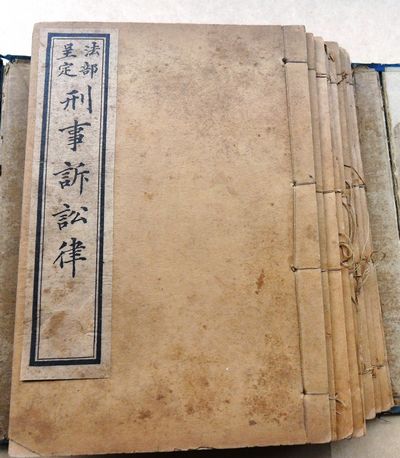 法部
呈定
刑事訴訟律